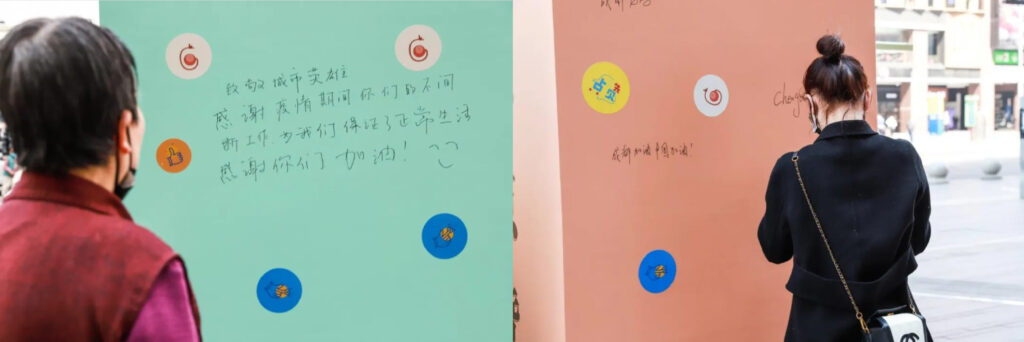 致敬城市英雄
感谢疫情期间你们的不间
断工作.为我们保证了正常生活
感谢你们 加油！
成都加油 中国加油！
Cheng